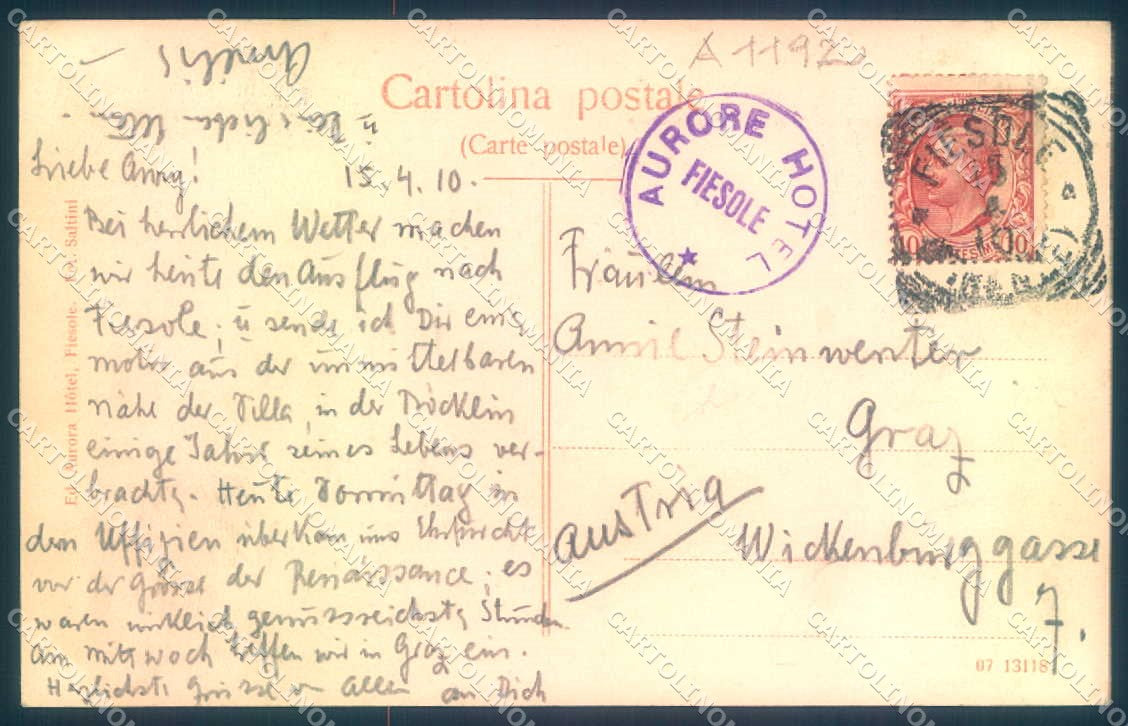 A 1192
Cartolina postale
(Carte postale)
AURORE HOTEL
FIESOLE
FIESOLE
10
CENTESIMI
10
Liebe Anny!
15.4.10.
Bei herrlichem Wetter machen
wir heute den Ausflug nach
Fiesole, u sende ich Dir eine
aus der unmittelbaren
nähe der Villa, in der Böcklin
einige Jahre seines Lebens ver-
brachte. Heute Vormittag in
den Uffizien überkam uns Ehrfurcht
vor der Grösse der Renaissance, es
waren wirklich genussreichste Stunden
Am Mittwoch treffen wir in Graz ein.
Herzlichste Grüsse v Allen an Dich
u Deine lieben
Fräulein
Steinwenter
Graz
Austria
Wickenburggasse
7.
Ed. Aurora Hôtel, Fiesole. Fot. Saltini
07 13118
CARTOLINOMANIA